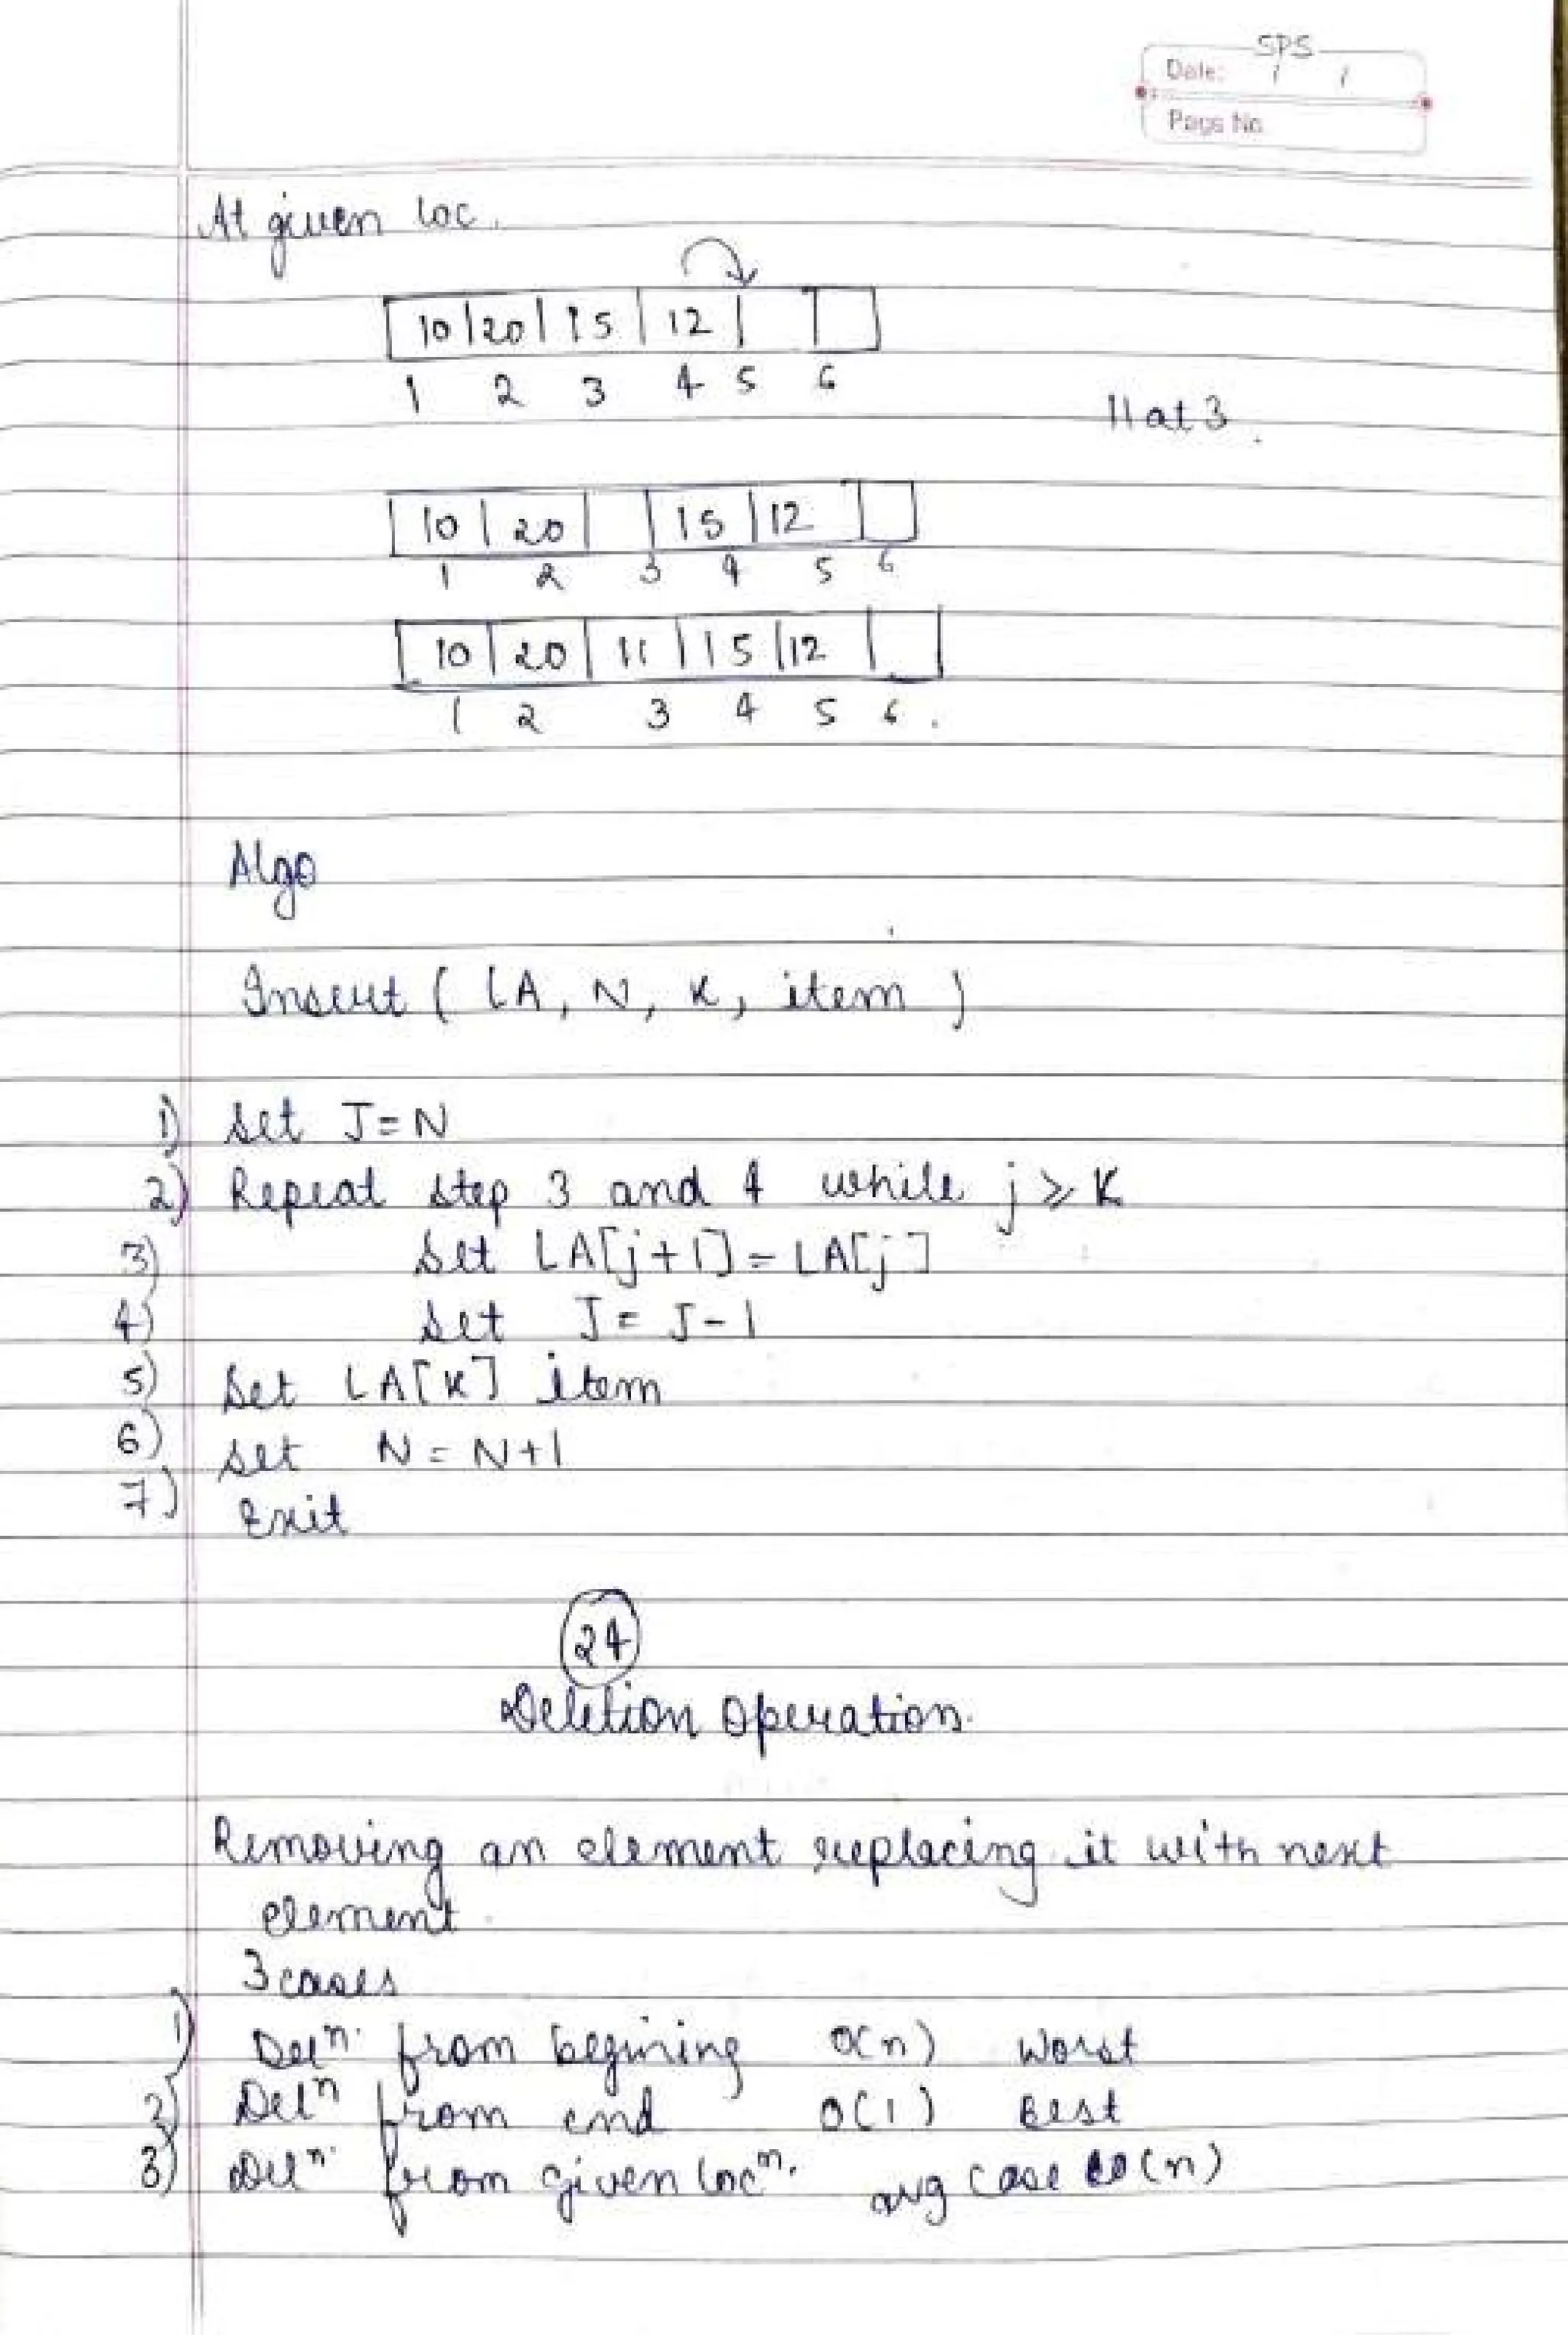 SPS
Date: / /
Page No
At given loc.
10 | 20 | 15 | 12 | |
1 2 3 4 5 6
11 at 3.
10 | 20 | | 15 | 12 |
1 2 3 4 5 6
10 | 20 | 11 | 15 | 12 |
1 2 3 4 5 6.
Algo
Insert ( LA, N, K, item )
1) Set J = N
2) Repeat step 3 and 4 while j ≥ K
3) Set LA[j+1] = LA[j]
4) Set J = J - 1
5) Set LA[K] item
6) Set N = N+1
7) Exit
24
Deletion Operation.
Removing an element replacing it with next
element.
3 cases
1) Delⁿ. from begining O(n) Worst
2) Delⁿ from end O(1) Best
3) Delⁿ. from given locⁿ. avg case O(n)